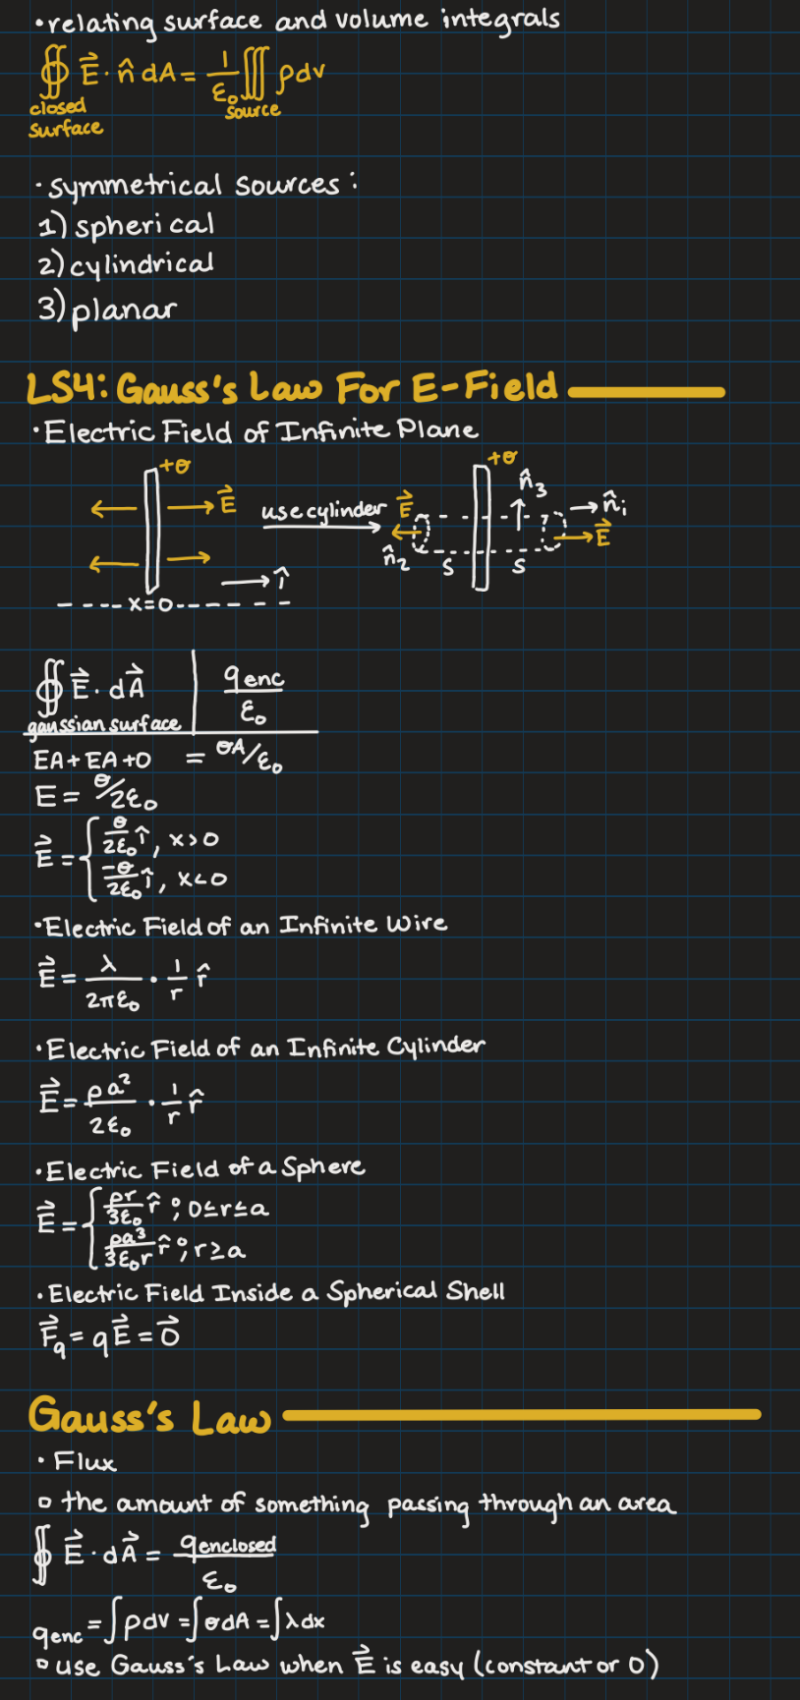 •relating surface and volume integrals
∯ E⃗ · n̂ dA = 1/ε₀ ∭ ρdv
closed surface
source
·symmetrical sources:
1) spherical
2) cylindrical
3) planar
LS4: Gauss's Law For E-Field
·Electric Field of Infinite Plane
+σ
E⃗
use cylinder
+σ
n̂₃
E⃗
n̂₁
E⃗
n̂₂
S
S
î
x=0
∯ E⃗ · dA⃗ | qenc/ε₀
gaussian surface
EA+EA+0 = σA/ε₀
E = σ/2ε₀
E⃗ = { σ/2ε₀ î, x>0
-σ/2ε₀ î, x<0
•Electric Field of an Infinite Wire
E⃗ = λ/2πε₀ · 1/r r̂
·Electric Field of an Infinite Cylinder
E⃗ = ρa²/2ε₀ · 1/r r̂
·Electric Field of a Sphere
E⃗ = { ρr/3ε₀ r̂ ; 0≤r≤a
ρa³/3ε₀r r̂ ; r≥a
·Electric Field Inside a Spherical Shell
F⃗q = qE⃗ = 0⃗
Gauss's Law
· Flux
▫ the amount of something passing through an area
∯ E⃗ · dA⃗ = qenclosed/ε₀
qenc = ∫ρdV = ∫σdA = ∫λdx
▫ use Gauss's Law when E⃗ is easy (constant or 0)